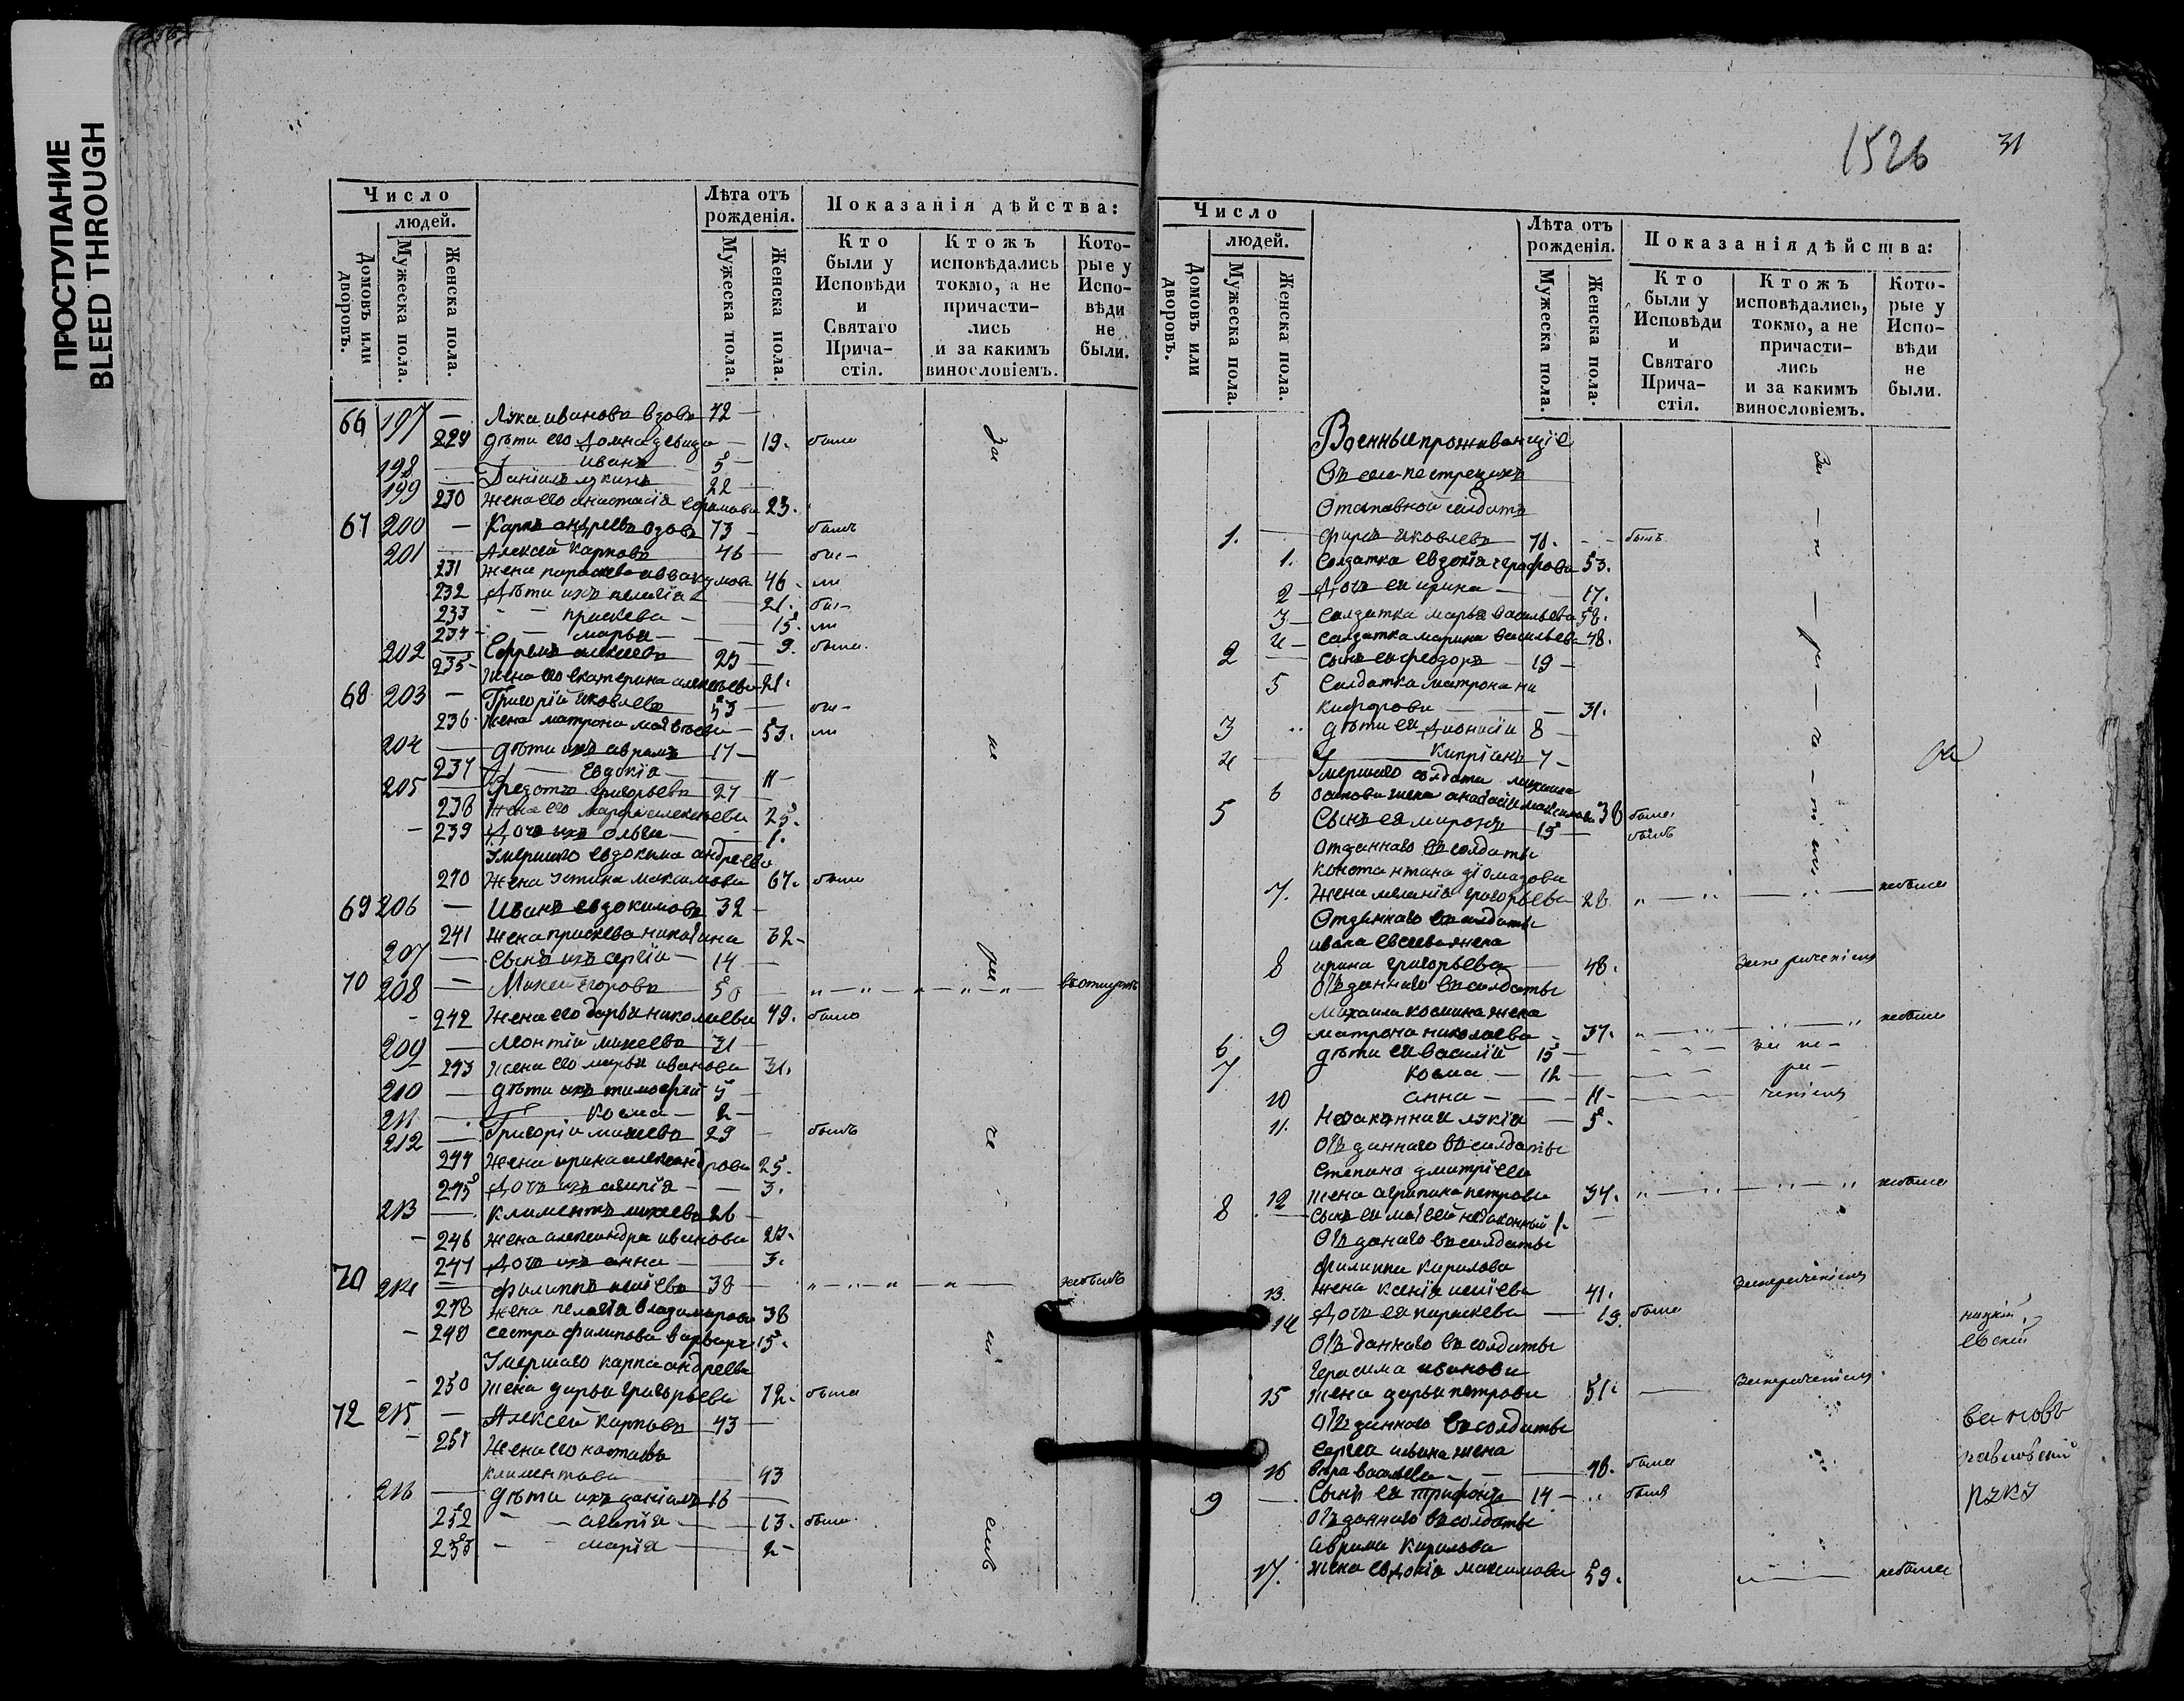 ПРОСТУПАНИЕ
BLEED THROUGH
Число
людей.
Домовъ или дворовъ.
Мужеска пола.
Женска пола.
Лѣта отъ рожденія.
Мужеска пола.
Женска пола.
Показанія дѣйства:
Кто были у Исповѣди и Святаго Прича-стія.
Ктожъ исповѣдались токмо, а не причасти-лись и за какимъ винословіемъ.
Кото-рые у Испо-вѣди не были.
66 197 — Лука ивановъ вдовъ 72 —
229 дѣти его домна девица — 19. была
198 — иванъ 5 —
199 — Даніилъ лукинъ 22 —
230 жена его анастасія ефимова 23.
67 200 — Карпъ андреевъ вдовъ 73 — былъ
201 — Алексей карповъ 46 —
231 жена параскева аввакумова 46 —
232 дѣти ихъ пелагія — 21.
233 — прискева — 15.
234 — марья — 9. была
202 — Ефремъ алексеевъ 23 —
235 жена его екатерина алексѣева 21.
68 203 — Григорій яковлевъ 53 —
236 жена матрона матвѣева — 53.
204 — дѣти ихъ аврамъ 17 —
237 — Евдокія — 11 —
205 — Федотъ григорьевъ 27 —
238 жена его марфа алексѣева 25.
239 дочь ихъ ольга — 1.
Умершаго евдокима андреева
240 жена устина максимова 67. была
69 206 — Иванъ евдокимовъ 32 —
241 жена прискева никитина 32 —
207 — сынъ ихъ сергій — 14 —
70 208 — Михей егоровъ 50 — „ — „ — „ — „ — „ —
242 жена его дарья николаева 49. была
209 — леонтій михеевъ 31 —
243 жена его марья иванова 31.
210 — дѣти ихъ тимофей 5 —
211 — косма — 2 —
212 — Григорій михеевъ 29 — былъ
244 жена ирина александрова 25.
245 дочь ихъ агапія — 3.
213 — климентъ михеевъ 26 —
246 жена александра иванова 23.
247 дочь ихъ анна — 3.
70 214 — филиппъ исаевъ 38 — „ — „ — „ — „ — небылъ
248 жена пелагія владимирова 38
249 сестра филипова варвара 15.
Умершаго карпа андреева
250 жена дарья григорьева 72. была
72 215 — Алексей карповъ 43 —
251 жена его наталья
климентова — 43
216 — дѣти ихъ даніилъ 16 —
252 — агапія — 13. была
253 — марія — 2 —
За не ре че ні емъ
1526
31
Число
людей.
Домовъ или дворовъ.
Мужеска пола.
Женска пола.
Лѣта отъ рожденія.
Мужеска пола.
Женска пола.
Показанія дѣйства:
Кто были у Исповѣди и Святаго Прича-стія.
Ктожъ исповѣдались, токмо, а не причасти-лись и за какимъ винословіемъ.
Кото-рые у Испо-вѣди не были.
Военные проживающіе
Въ селе пестрецахъ
Отставной солдатъ
1. — фирсъ яковлевъ 70. — былъ
1. Солдатка евдокія 53.
2 — дочь ея ирина — 17.
3 — солдатка марья васильева 58.
4 — солдатка марина васильева 48.
2 — сынъ ея феодоръ — 19 —
5 Солдатка матрона ни
кифорова — 31.
3 дѣти ея діонисій 8 —
4 — кипріянъ 7 —
Умершаго солдата михаила
6 осипова жена анастасія максимова 38 была
5 Сынъ ея миронъ — 15 — былъ
Отданнаго въ солдаты
константина діомидова
7. жена меланія григорьева 28 „ — „ — „ — небыла
Отданнаго въ солдаты
ивана евсеева жена
8 ирина григорьева — 48.
Отъданнаго въ солдаты
михаила космина жена
9 матрона николаева — 37. „ — „ — „ — „ небыла
6 дѣти ея василій 15 — за не —
7 косма — 12 — ре —
10 анна — 11 — ченіемъ
11. незаконная лукія — 5.
Отъ даннаго въ солдаты
степана дмитріева
12 жена агрипина петрова 34. „ — „ — „ — „ небыла
8 — сынъ ея моѵсей незаконный 1.
Отъ данаго въ солдаты
филиппа кирилова
13. жена ксенія исаева 41.
14 дочь ея параскева — 19. была
Отъ даннаго въ солдаты
Герасима иванова
15 жена дарья петрова 51.
Отъ даннаго въ солдаты
сергея ильина жена
16 вера васильева — 48. была
9 — Сынъ ея трифонъ 14 — былъ
Отъ даннаго въ солдаты
аврама кирилова
17. жена евдокія максимова 59. небыла